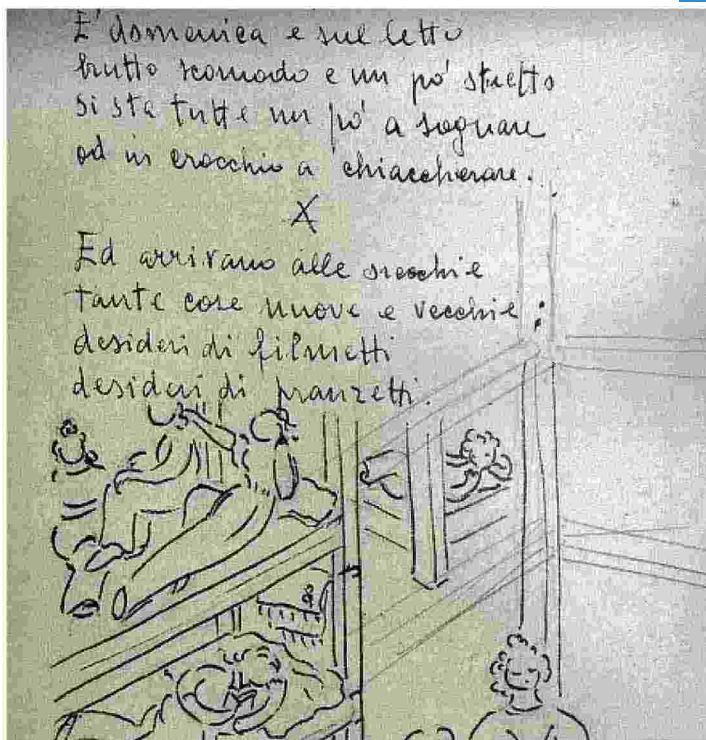 E' domenica e sul letto
brutto scomodo e un pò stretto
si sta tutte un pò a sognare
od in crocchio a chiaccherare.
X
Ed arrivano alle orecchie
tante cose nuove e vecchie:
desideri di filmetti
desideri di pranzetti.